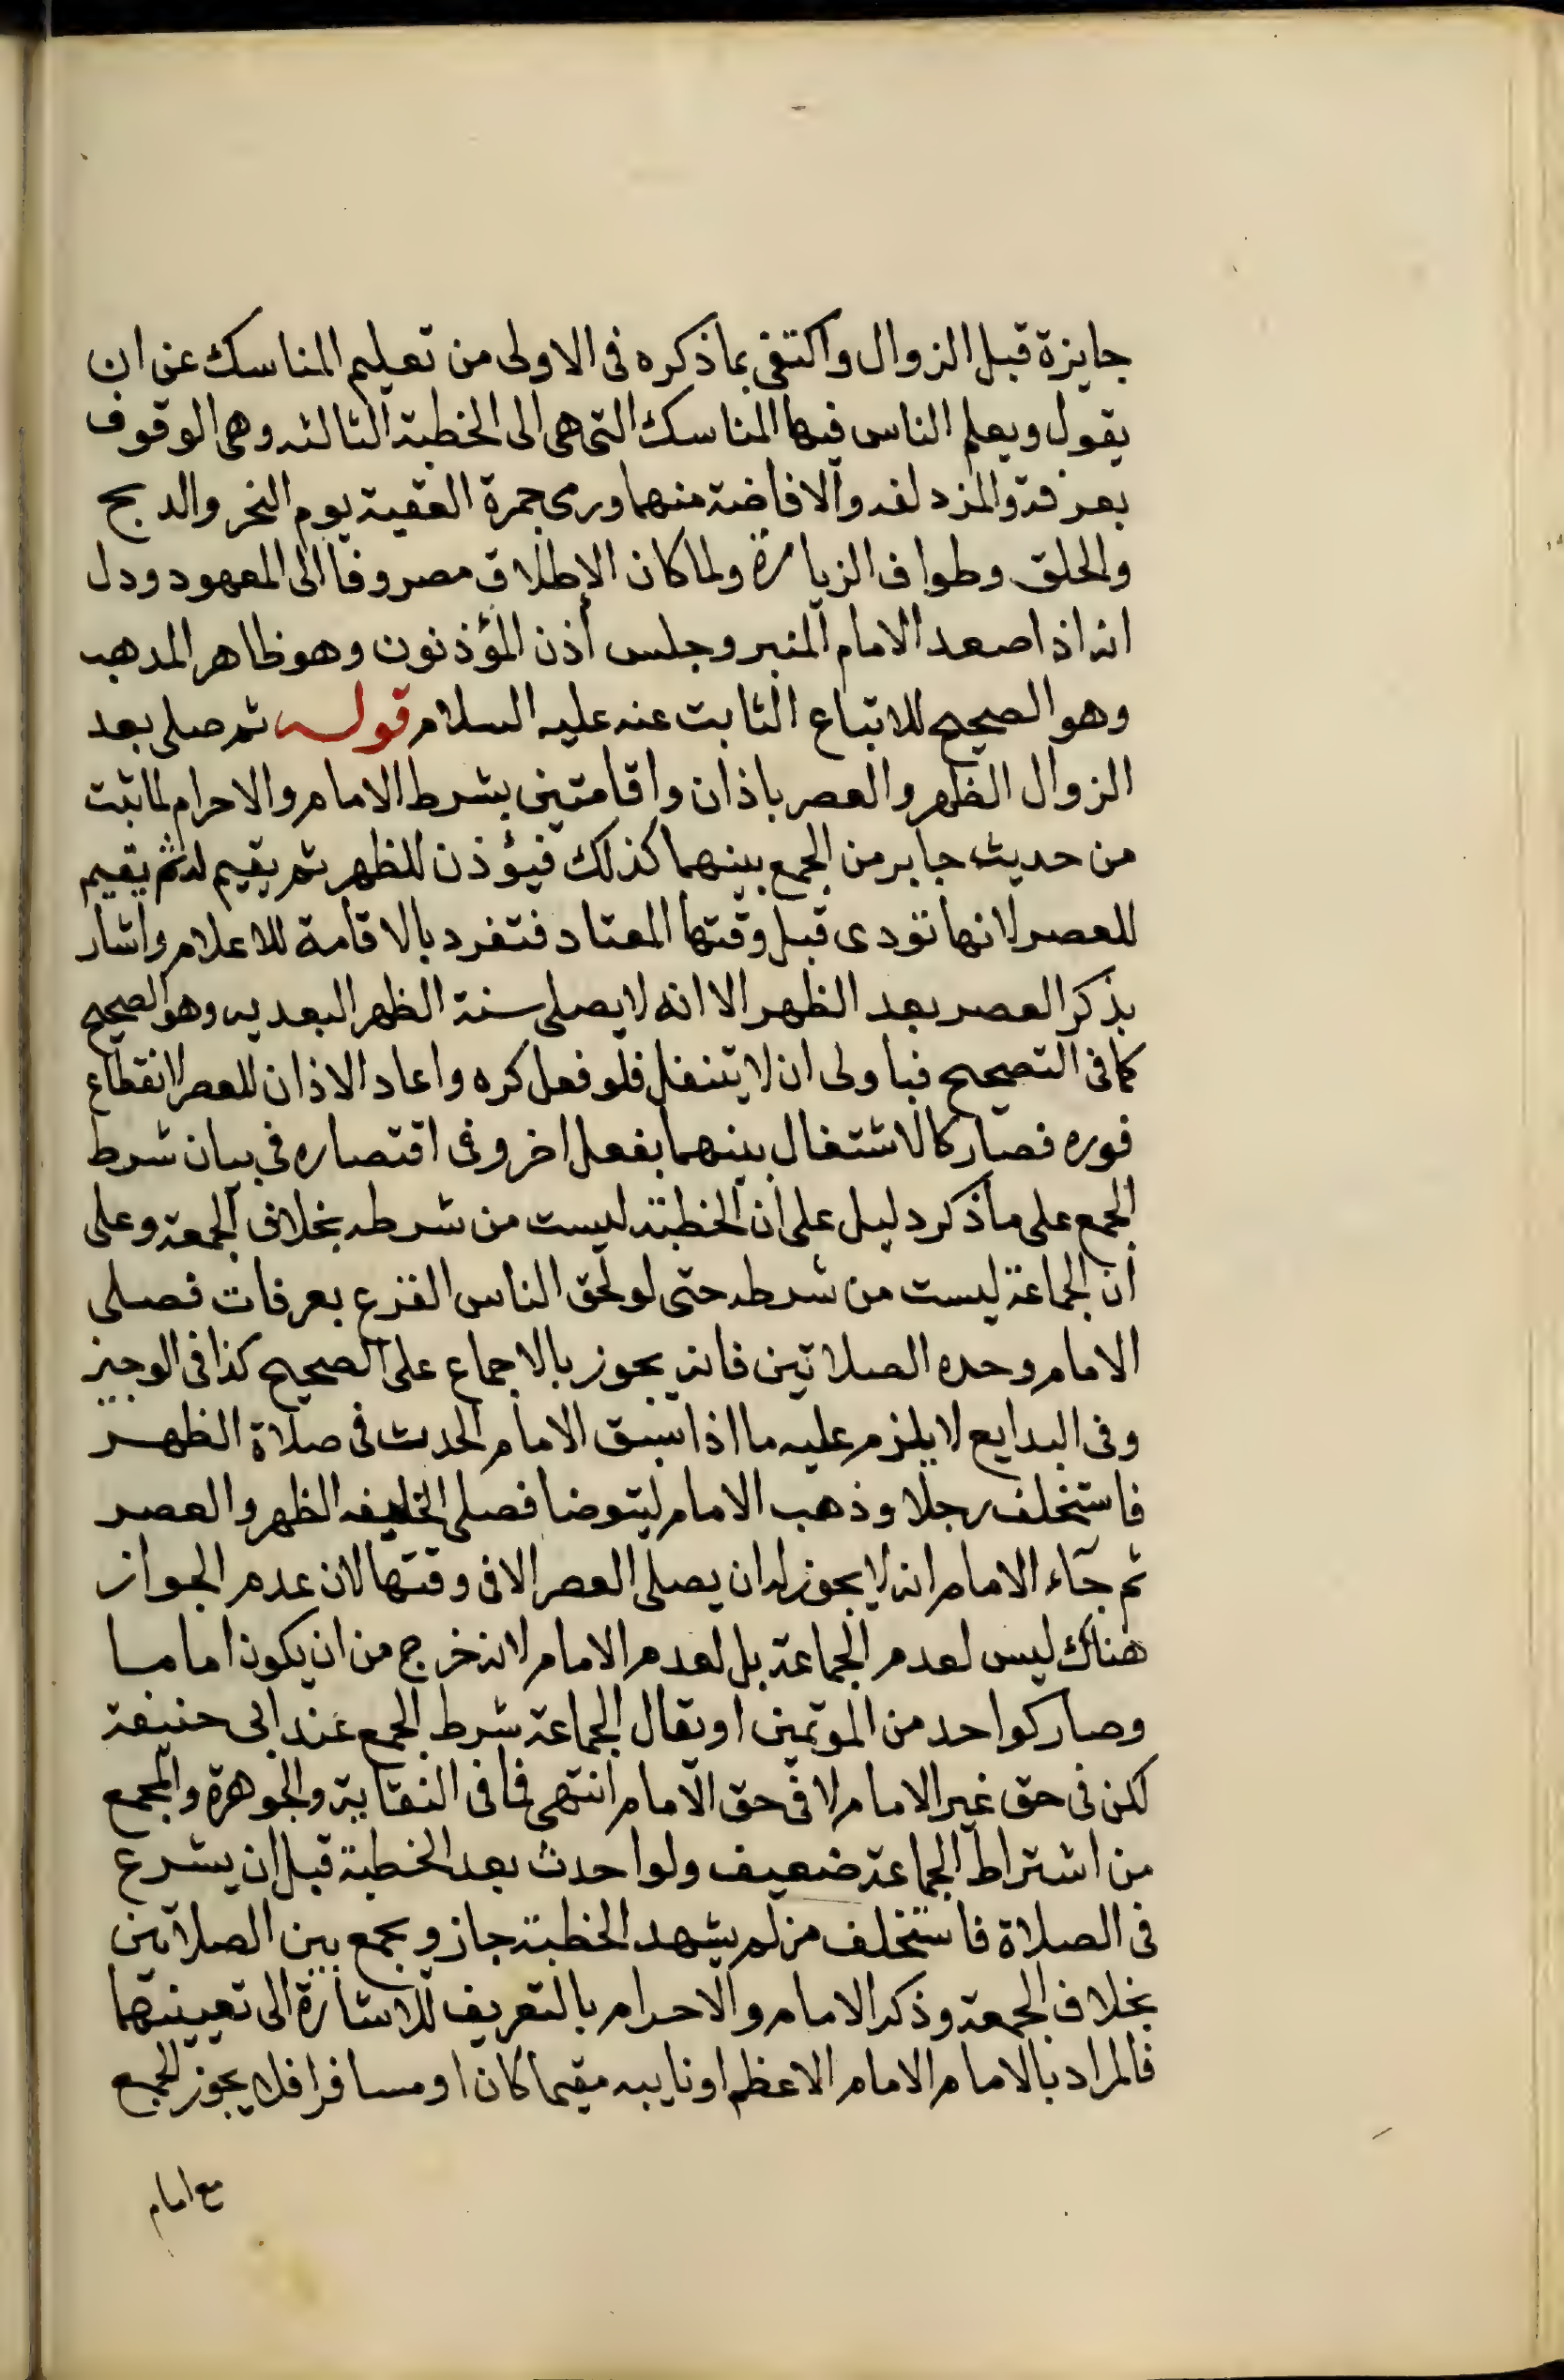 جايزة قبل الزوال واكتفى بما ذكره فى الاولى من تعليم المناسك عن ان
يقول ويعلم الناس فيها المناسك التى هى الى الخطبة الثالثه وهى الوقوف
بعرفة والمزدلفه والافاضة منهما ورمى جمرة العقبة يوم النحر والدبح
والحلق وطواف الزيارة ولما كان الاطلاق مصروفا الى المعهود ودل
انه اذا صعد الامام المنبر وجلس أذن المؤذنون وهو ظاهر المدهب
وهو الصحيح للاتباع الثابت عنه عليه السلام قوله ثم صلى بعد
الزوال الظهر والعصر باذان واقامتين بشرط الامام والاحرام لما ثبت
من حديث جابر من الجمع بينهما كذلك فيؤذن للظهر ثم يقيم له ثم يقيم
للعصر لانها تؤدى قبل وقتها المعتاد فتفرد بالاقامة للاعلام واشار
بذكر العصر بعد الظهر الا انه لا يصلى سنة الظهر البعديه وهو الصحيح
كما فى التصحيح فباولى ان لا يتنفل فلو فعل كره واعاد الاذان للعصر لانقطاع
فوره فصار كالاشتغال بينهما بفعل اخر وفى اقتصاره فى بيان شرط
الجمع على ما ذكر دليل على ان الخطبة ليست من شرطه بخلاف الجمعة وعلى
ان الجماعة ليست من شرطه حتى لو لحق الناس الفزع بعرفات فصلى
الامام وحده الصلاتين فانه يجوز بالاجماع على الصحيح كذا فى الوجيز
وفى البدايع لا يلزم عليه ما اذا سبق الامام الحدث فى صلاة الظهر
فاستخلف رجلا وذهب الامام ليتوضا فصلى الخليفه الظهر والعصر
ثم جآء الامام انه لا يجوز له ان يصلى العصر الا فى وقتها لان عدم الجواز
هناك ليس لعدم الجماعة بل لعدم الامام لانه خرج من ان يكون اماما
وصار كواحد من الموتمين او يقال الجماعة شرط الجمع عند ابى حنيفة
لكن فى حق غير الامام لا فى حق الامام انتهى فما فى النقاية والجوهرة والمجمع
من اشتراط الجماعة ضعيف ولو احدث بعد الخطبة قبل ان يشرع
فى الصلاة فاستخلف من لم يشهد الخطبة جاز ويجمع بين الصلاتين
بخلاف الجمعة وذكر الامام والاحرام بالتعريف للاشارة الى تعيينهما
فالمراد بالامام الامام الاعظم او نايبه مقيما كان او مسافرا فلا يجوز الجمع
مع امام